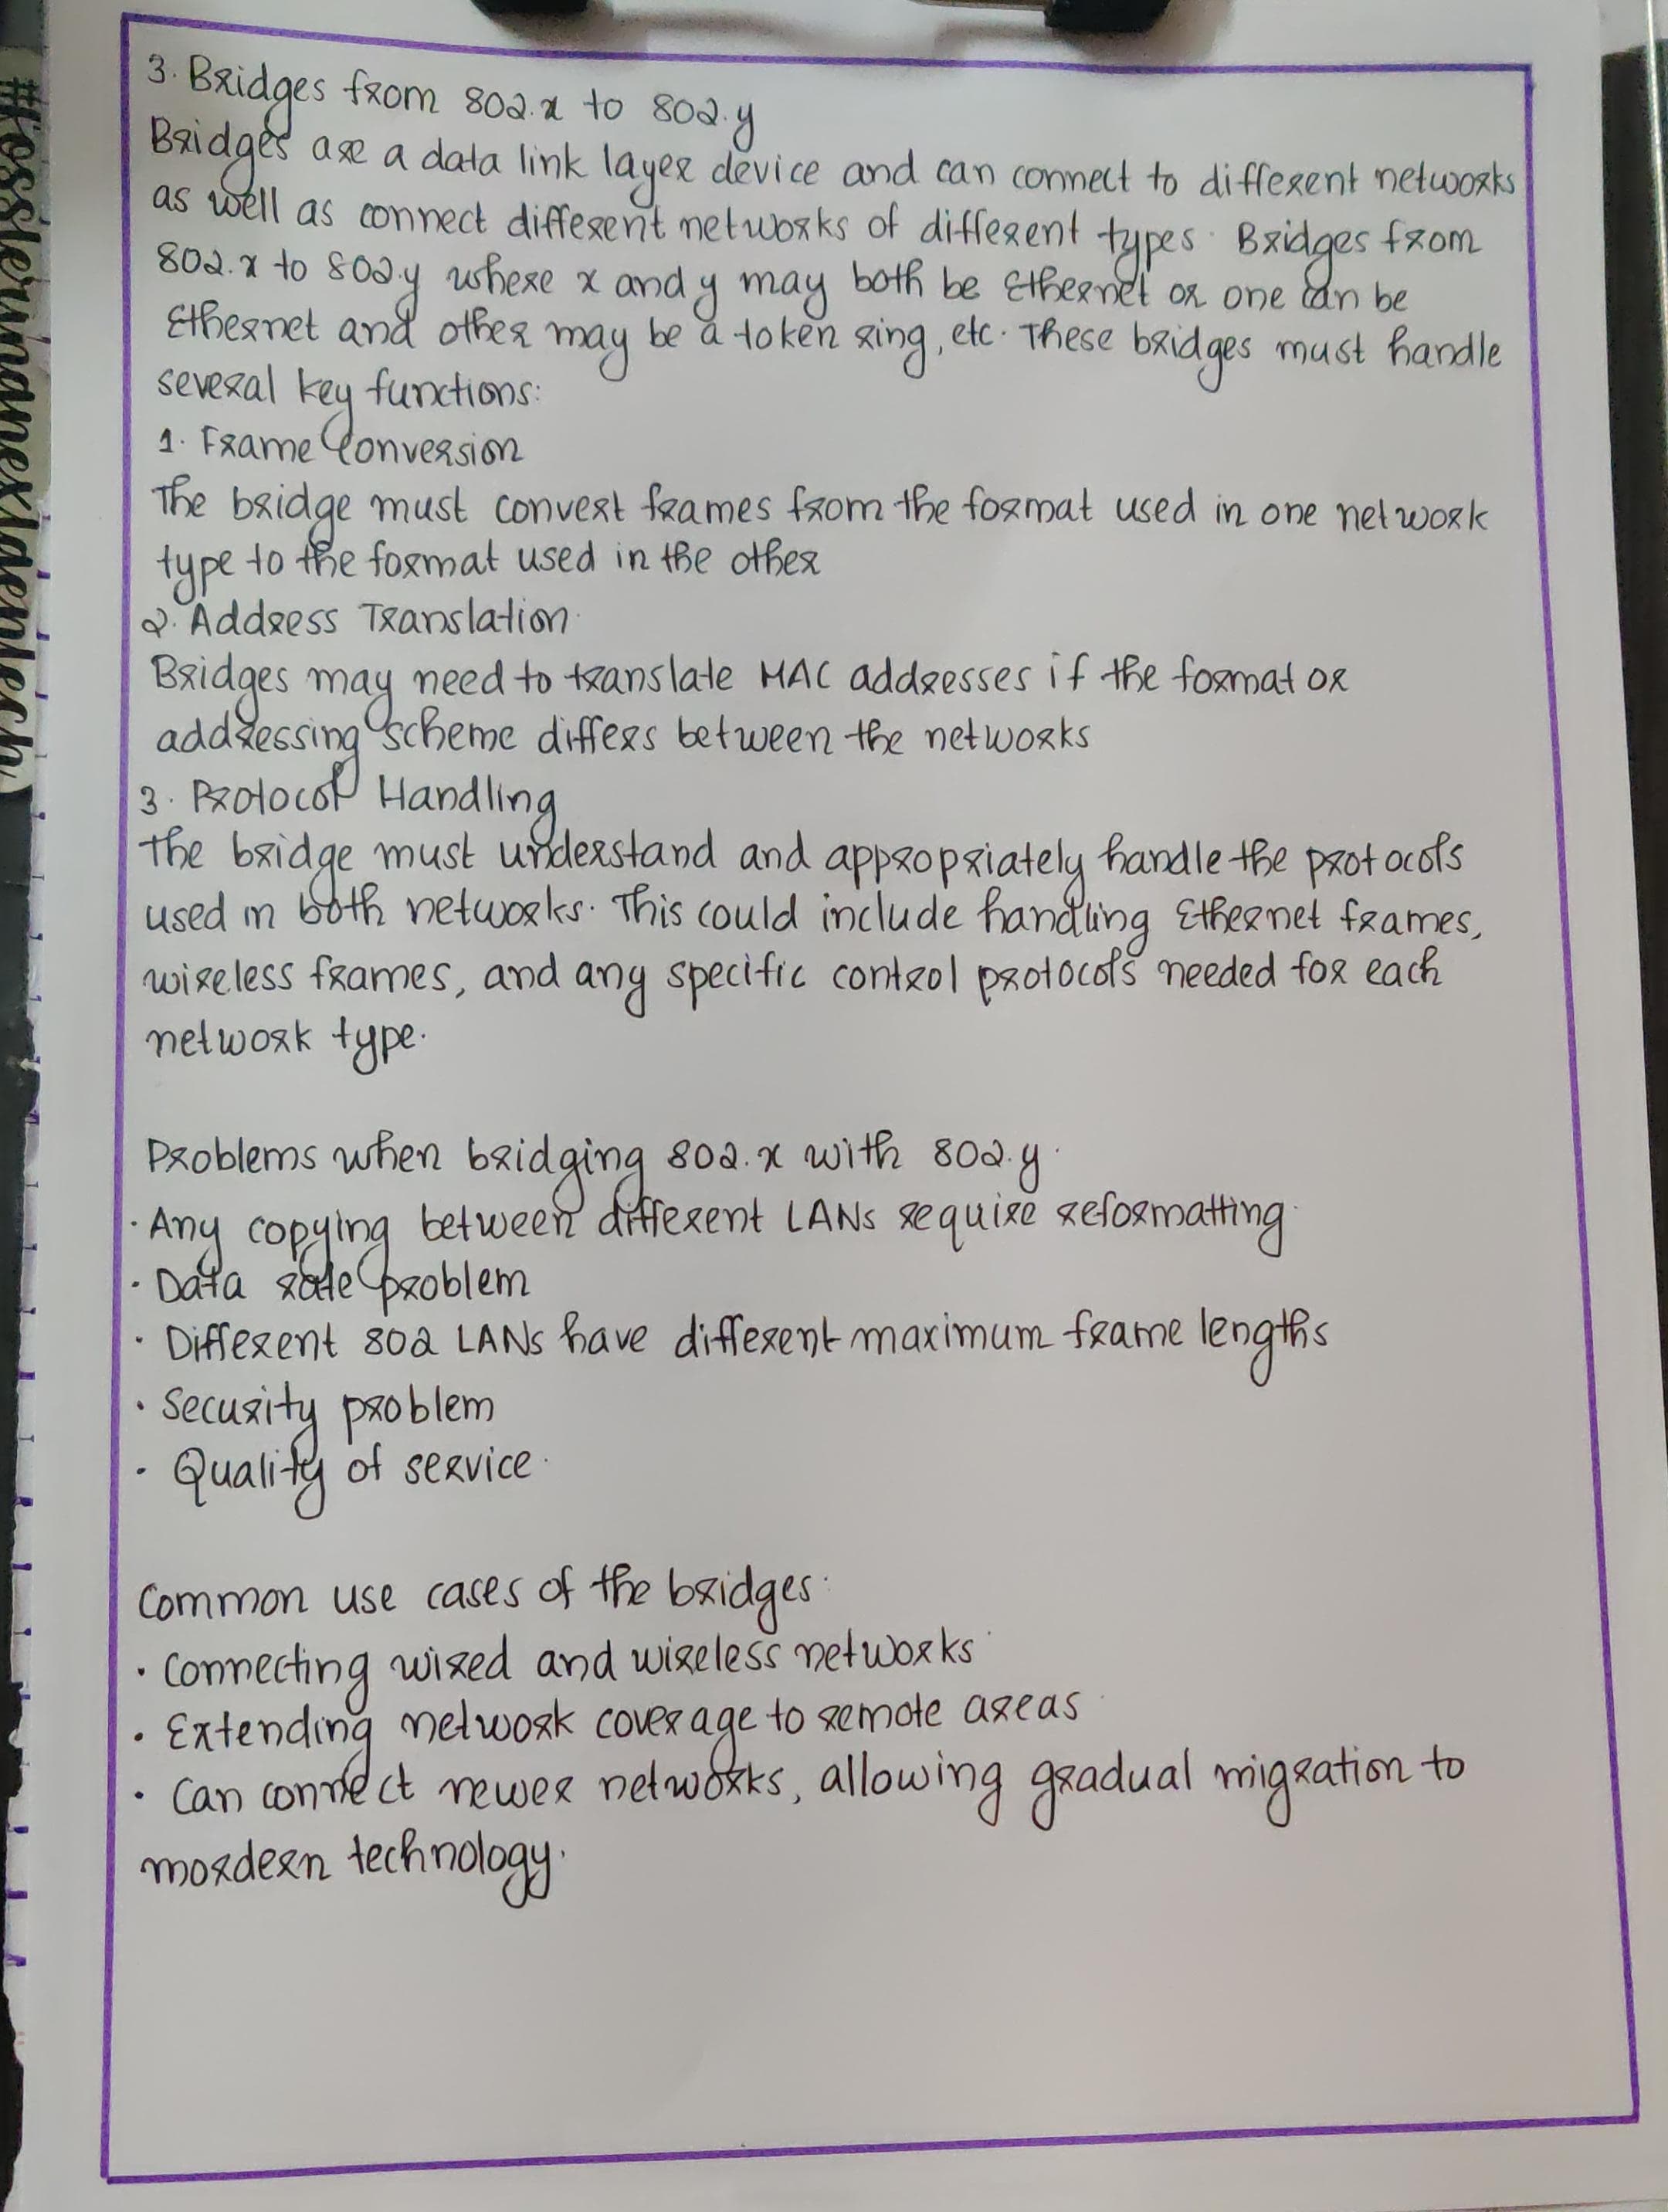 3. Bridges from 802.x to 802.y
Bridges are a data link layer device and can connect to different networks
as well as connect different networks of different types. Bridges from
802.x to 802.y where x and y may both be Ethernet or one can be
Ethernet and other may be a token ring, etc. These bridges must handle
several key functions:
1. Frame Conversion
The bridge must convert frames from the format used in one network
type to the format used in the other
2. Address Translation.
Bridges may need to translate MAC addresses if the format or
addressing scheme differs between the networks
3. Protocol Handling
The bridge must understand and appropriately handle the protocols
used in both networks. This could include handling Ethernet frames,
wireless frames, and any specific control protocols needed for each
network type.
Problems when bridging 802.x with 802.y.
· Any copying between different LANs require reformatting.
· Data rate problem
· Different 802 LANs have different maximum frame lengths
· Security problem
· Quality of service.
Common use cases of the bridges:
· Connecting wired and wireless networks.
· Extending network coverage to remote areas.
· Can connect newer networks, allowing gradual migration to
mordern technology.